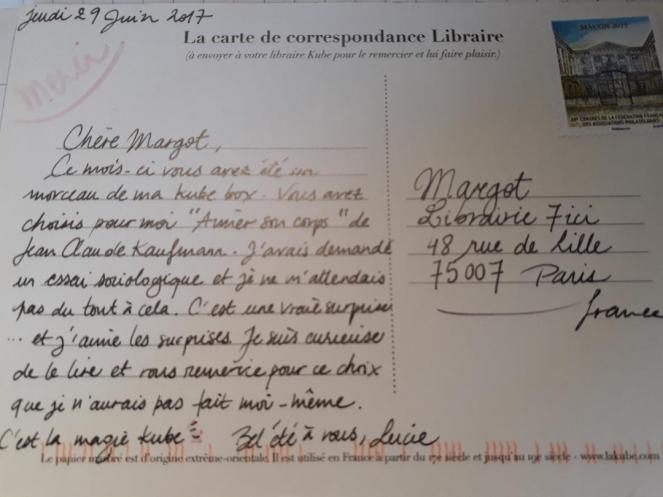 Jeudi 29 Juin 2017
La carte de correspondance Libraire
(à envoyer à votre libraire Kube pour le remercier et lui faire plaisir.)
merci
MÂCON 2017
DES ASSOCIATIONS PHILATÉLIQUES
Chère Margot,
Ce mois-ci vous avez été un
morceau de ma kube box. Vous avez
choisis pour moi "Aimer son corps" de
Jean Claude Kaufmann. J'avais demandé
un essai sociologique et je ne m'attendais
pas du tout à cela. C'est une vraie surprise
... et j'aime les surprises. Je suis curieuse
de le lire et vous remercie pour ce choix
que je n'aurais pas fait moi-même.
C'est la magie kube Bel été à vous, Lucie
Margot
Librairie 7ici
48 rue de Lille
75007 Paris
france
Le papier est d'origine extrême-orientale. Il est utilisé en France à partir du 17e siècle et jusqu'au 19e siècle - www.lakube.com